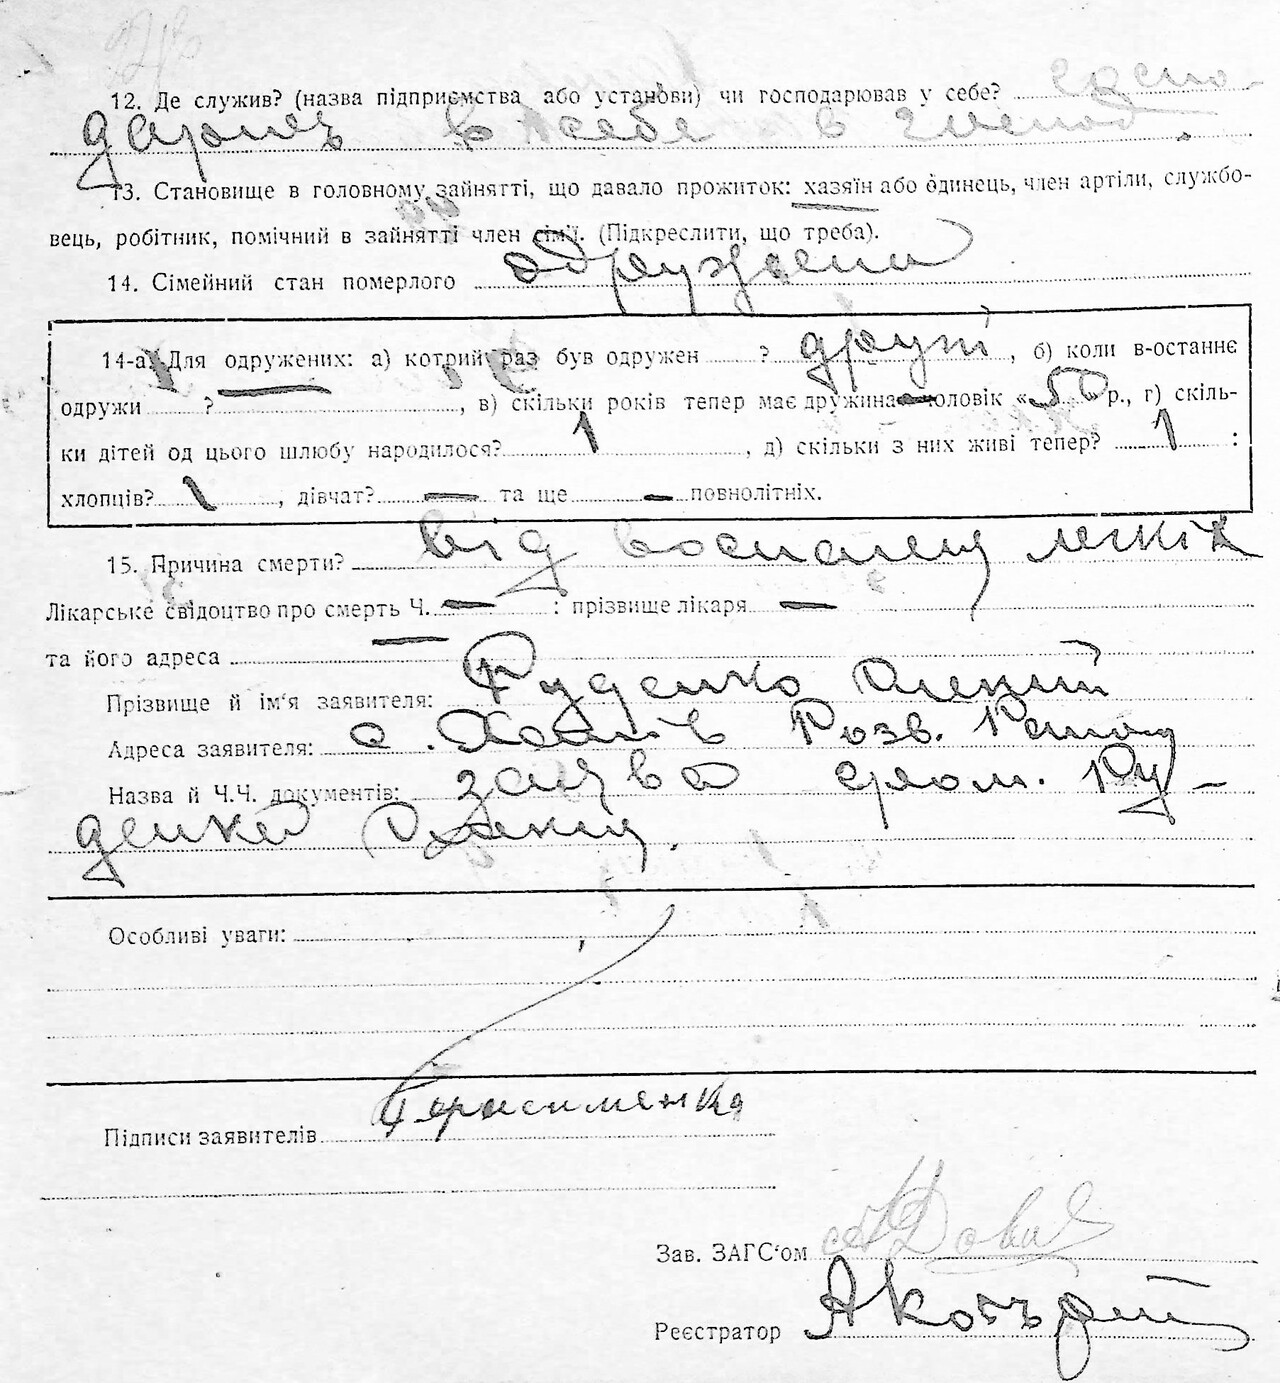 12. Де служив? (назва підприємства або установи) чи господарював у себе? госпо-
дарював в себе в
13. Становище в головному зайнятті, що давало прожиток: хазяїн або одинець, член артіли, службо-
вець, робітник, помічний в зайнятті член сім'ї. (Підкреслити, що треба).
14. Сімейний стан померлого одружени
14-а) Для одружених: а) котрий раз був одружен ? другі, б) коли в-останнє
одружи ? , в) скільки років тепер має дружина-чоловік «50» р., г) скіль-
ки дітей од цього шлюбу народилося? 1 , д) скільки з них живі тепер? 1 :
хлопців? 1 , дівчат? — та ще — повнолітніх.
15. Причина смерти? від воспаления легкіх
Лікарське свідоцтво про смерть Ч. — : прізвище лікаря —
та його адреса —
Прізвище й ім'я заявителя: Руденко Олекій
Адреса заявителя: с. Розв.
Назва й Ч.Ч. документів: заява гром. Ру-
денка
Особливі уваги:
Підписи заявителів Герасименко
Зав. ЗАГС'ом
Реєстратор